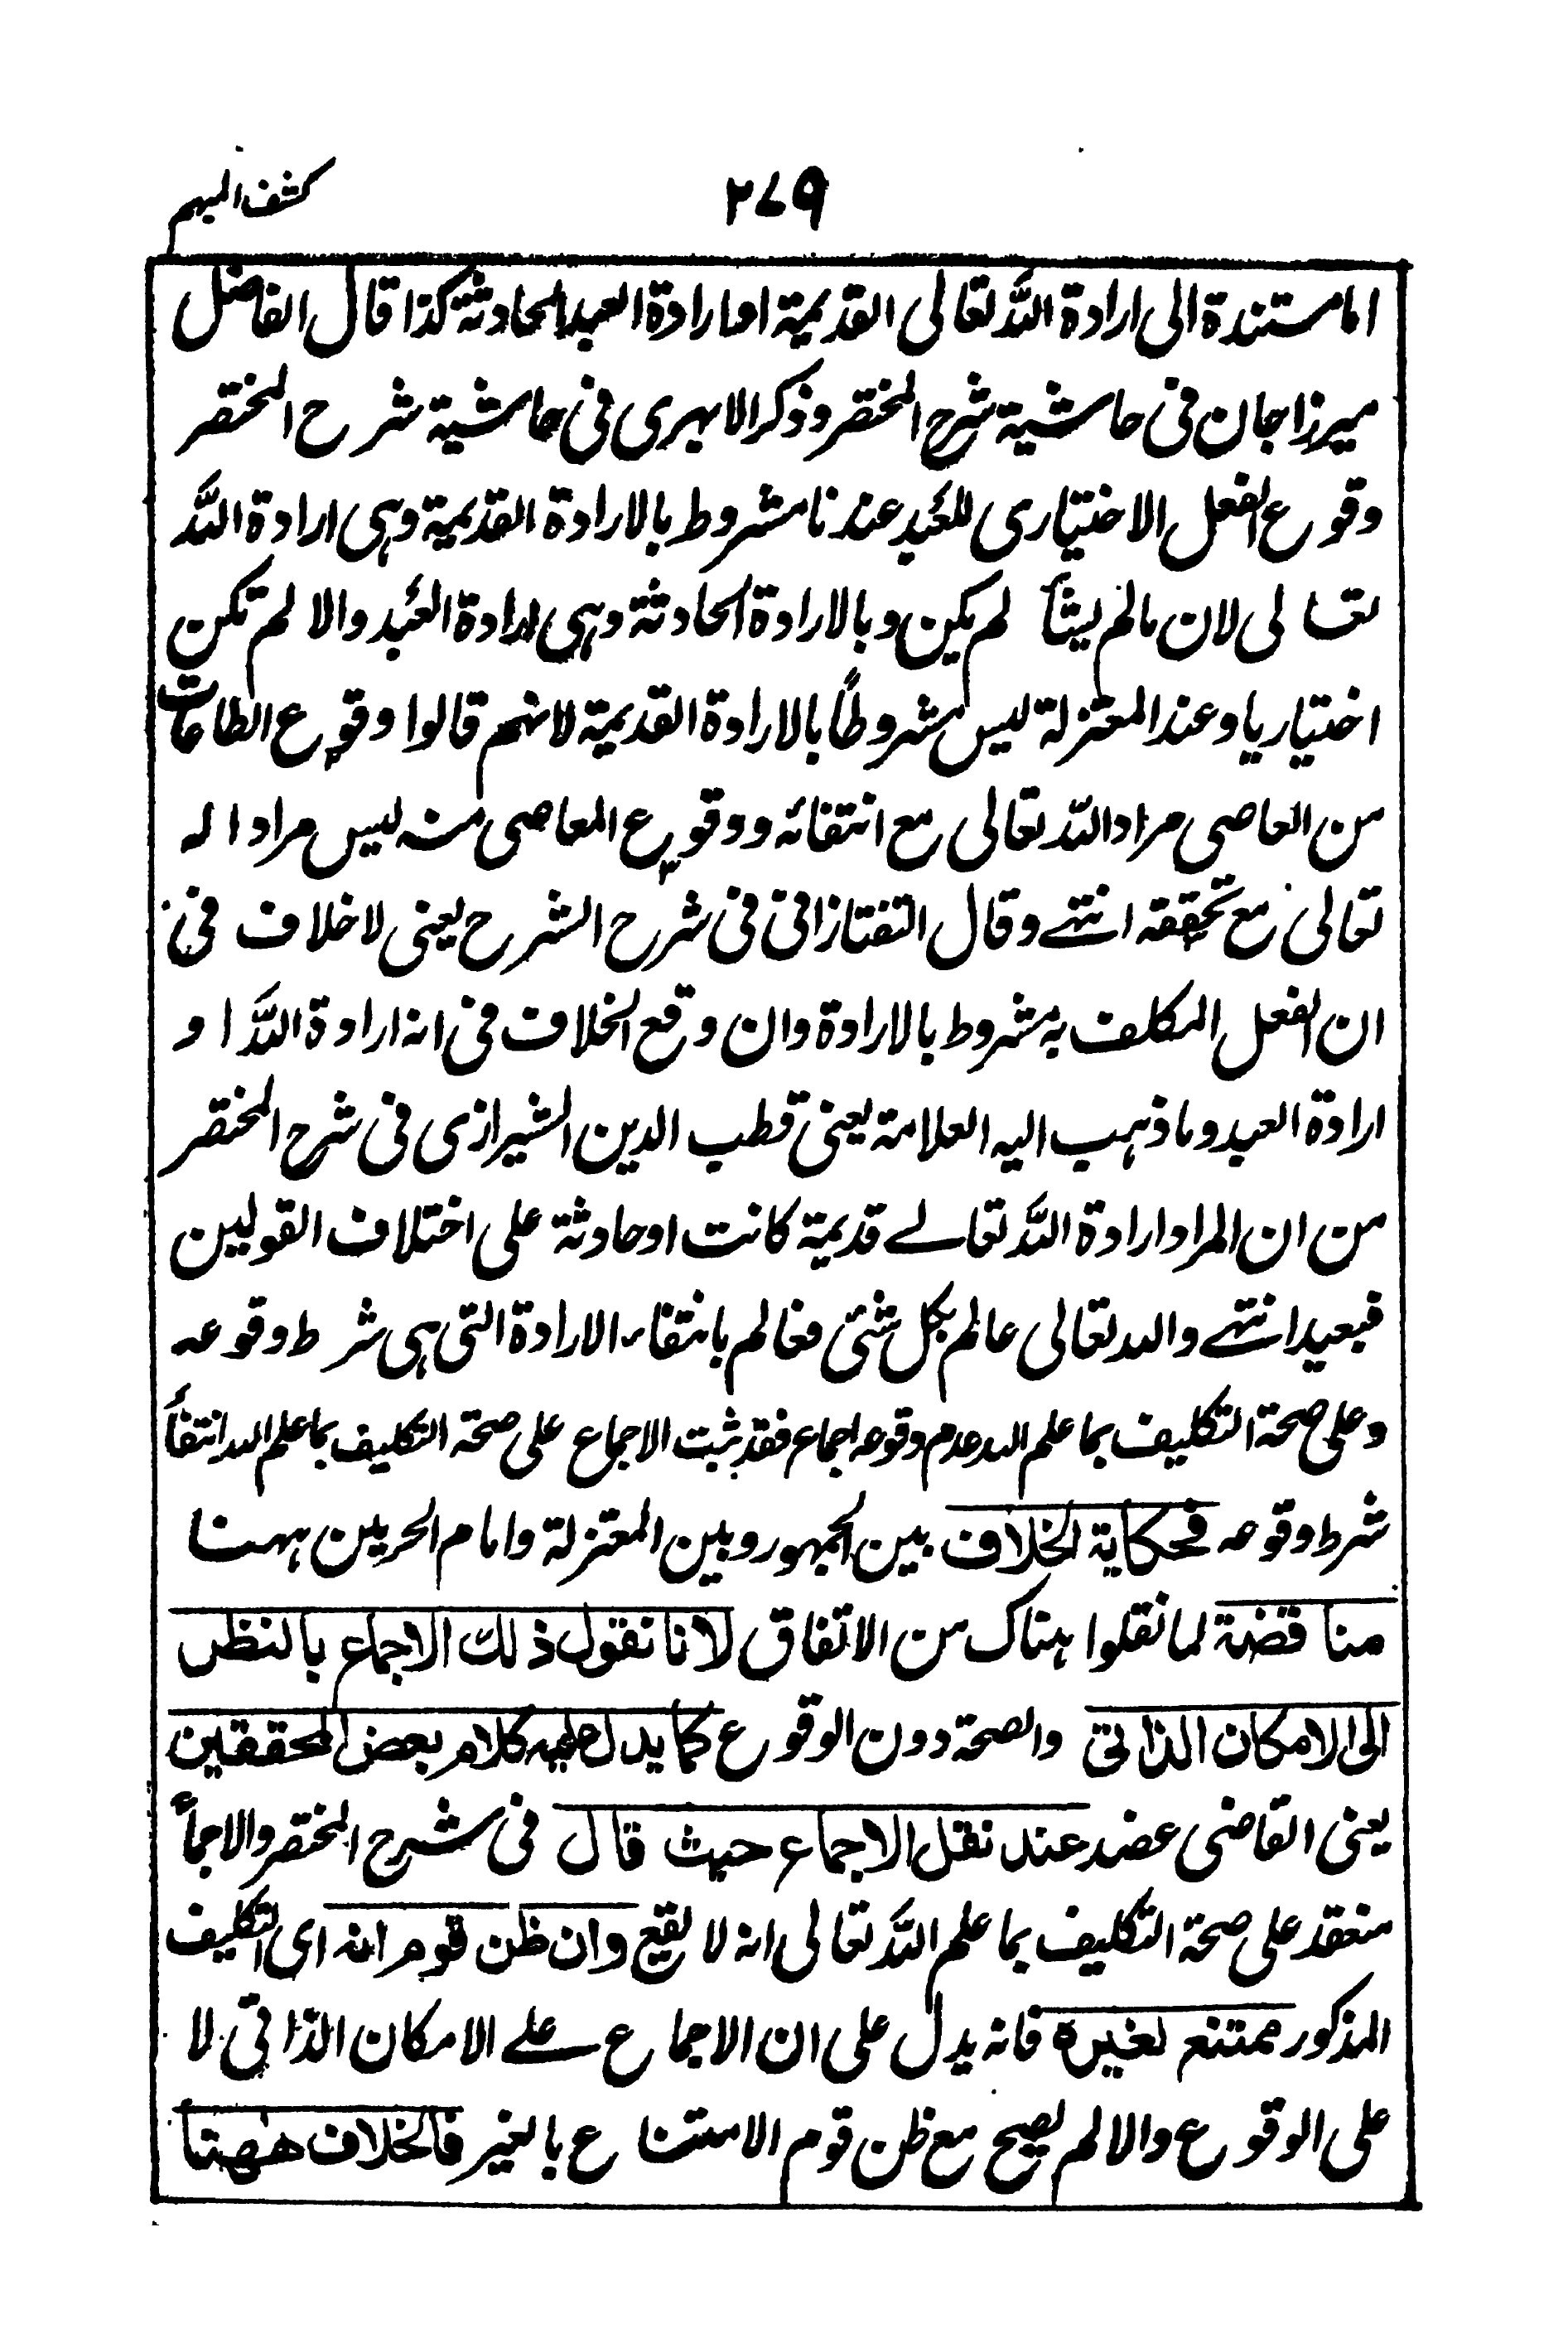 ٢٧٩
كشف المبهم
اما مستندة الى ارادة الله تعالى القديمة او ارادة العبد الحادثة كذا قال الفاضل
ميرزاجان فى حاشية شرح المختصر وذكر الابهرى فى حاشية شرح المختصر
وقوع الفعل الاختيارى للعبد عندنا مشروط بالارادة القديمة وهى ارادة الله
تعالى لان مالم يشأ لم يكن وبالارادة الحادثة وهى ارادة العبد والا لم تكن
اختياريا وعند المعتزلة ليس مشروطاً بالارادة القديمة لانهم قالوا وقوع الطاعات
من العاصى مراد الله تعالى مع انتفائه ووقوع المعاصى منه ليس مرادا له
تعالى مع تحققه انتهے وقال التفتازانى فى شرح الشرح يعنى لا خلاف فى
ان الفعل المكلف به مشروط بالارادة وان وقع الخلاف فى انه ارادة الله او
ارادة العبد وما ذهب اليه العلامة يعنى قطب الدين الشيرازى فى شرح المختصر
من ان المراد ارادة الله تعالے قديمة كانت او حادثة على اختلاف القولين
فبعيد انتهے والله تعالى عالم بكل شئ فعالم بانتفاء الارادة التى هى شرط وقوعه
وعلى صحة التكليف بما علم الله عدم وقوعه اجماع فقد ثبت الاجماع على صحة التكليف بما علم الله انتفأ
شرط وقوعه فحكاية الخلاف بين الجمهور وبين المعتزلة وامام الحرمين ههنا
مناقضة لما نقلوا هناك من الاتفاق لانا نقول ذلك الاجماع بالنظر
الى الامكان الذاتى والصحة دون الوقوع كما يدل عليه كلام بعض المحققين
يعنى القاضى عضد عند نقل الاجماع حيث قال فى شرح المختصر والاجماً
منعقد على صحة التكليف بما علم الله تعالى انه لا يقع وان ظن قوم انه اى التكليف
المذكور ممتنع لغيره فانه يدل على ان الاجماع علے الامكان الذاتى لا
على الوقوع والا لم يصح مع ظن قوم الامتناع بالغير فالخلاف ههنا